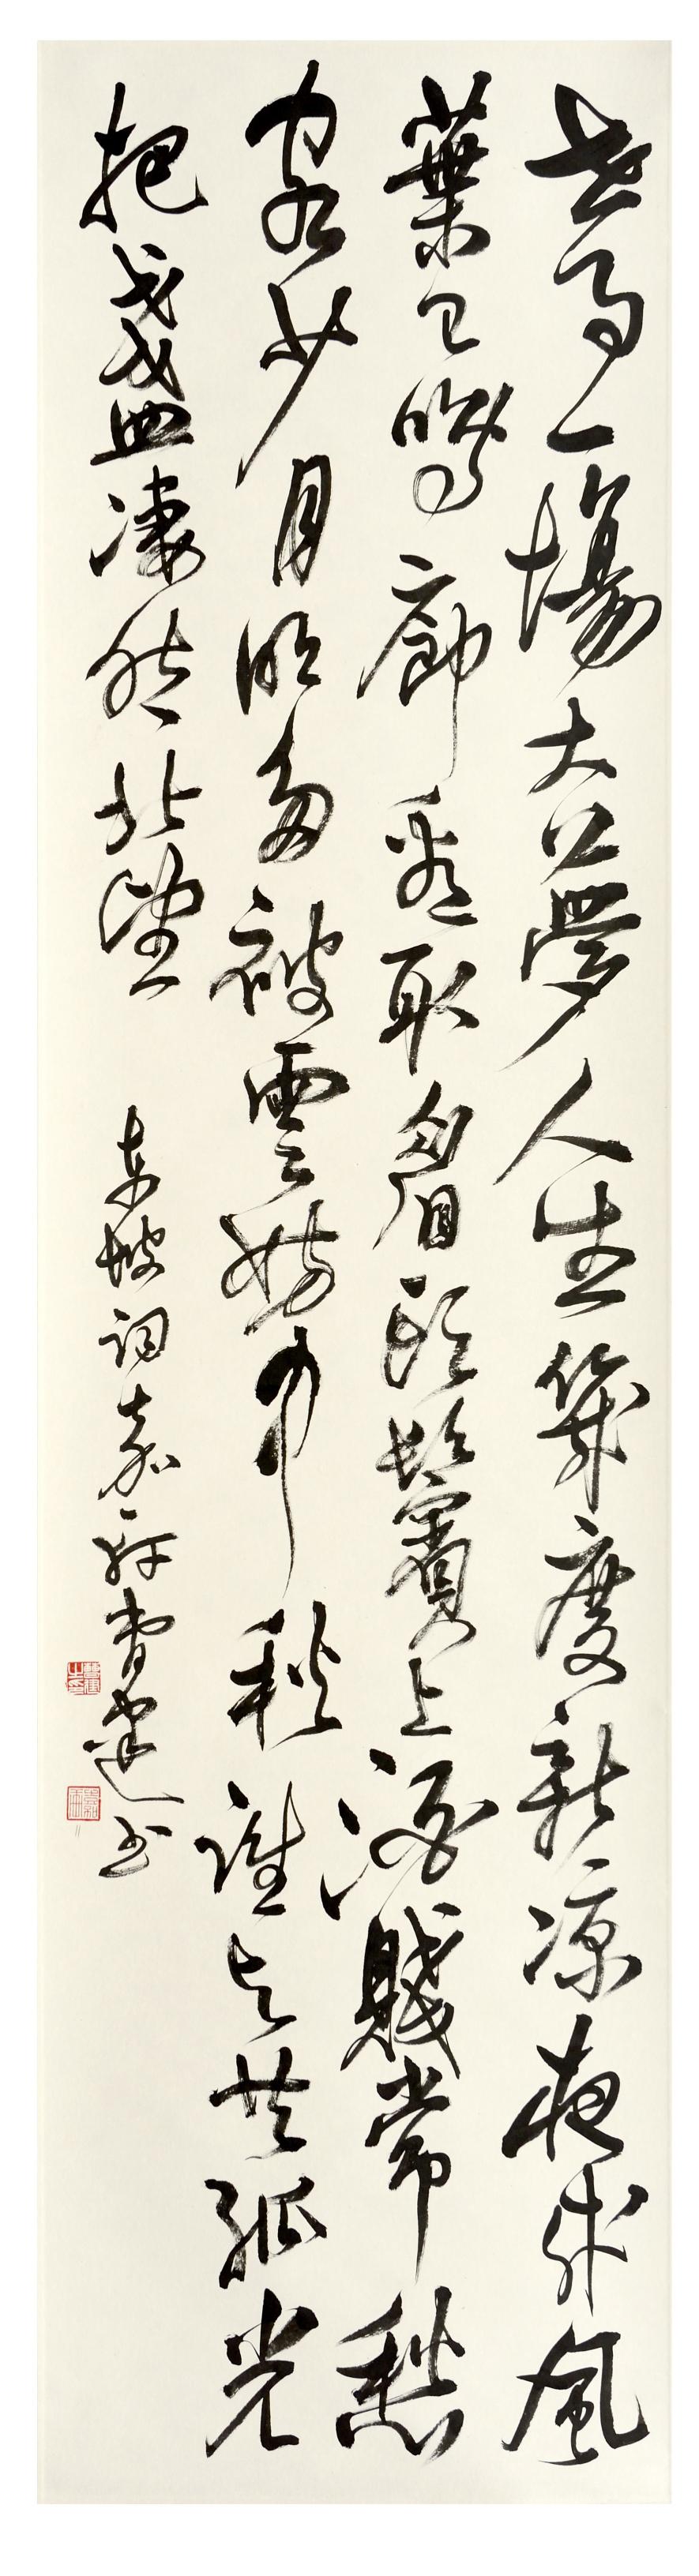 世事一場大夢人生幾度新凉夜來風
葉已鳴廊看取眉頭鬢上酒賤常愁
客少月明多被雲妨中秋誰與共孤光
把盞凄然北望 東坡詞 曹建書